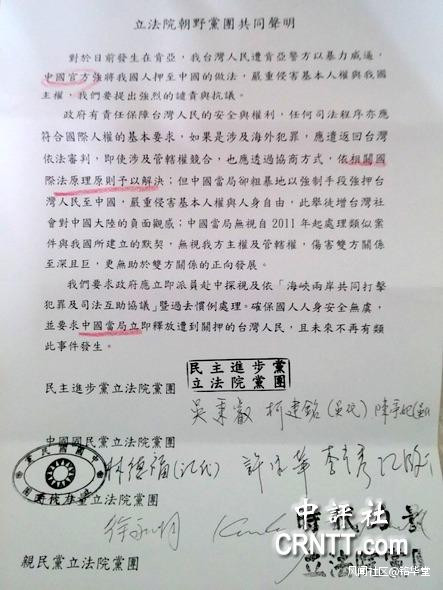 立法院朝野黨團共同聲明
對於目前發生在肯亞，我台灣人民遭肯亞警方以暴力威逼，
中國官方強將我國人押至中國的做法，嚴重侵害基本人權與我國
主權，我們要提出強烈的譴責與抗議。
政府有責任保障台灣人民的安全與權利，任何司法程序亦應
符合國際人權的基本要求，如果是涉及海外犯罪，應遣返回台灣
依法審判，即使涉及管轄權競合，也應透過協商方式，依相關國
際法原理原則予以解決；但中國當局卻粗暴地以強制手段強押台
灣人民至中國，嚴重侵害基本人權與人身自由，此舉徒增台灣社
會對中國大陸的負面觀感；中國當局無視自2011年起處理類似案
件與我國所建立的默契，無視我方主權及管轄權，傷害雙方關係
至深且巨，更無助於雙方關係的正向發展。
我們要求政府應立即派員赴中探視及依「海峽兩岸共同打擊
犯罪及司法互助協議」暨過去慣例處理。確保國人人身安全無虞，
並要求中國當局立即釋放遭到關押的台灣人民，且未來不再有類
此事件發生。
民主進步黨
立法院黨團
民主進步黨立法院黨團
吳秉叡 柯建銘
中國國民黨立法院黨團
林德福
立法院黨團
徐永明
時代力量
立法院黨團
親民黨立法院黨團
中評社
CRNTT.com
风闻社区@铭华堂